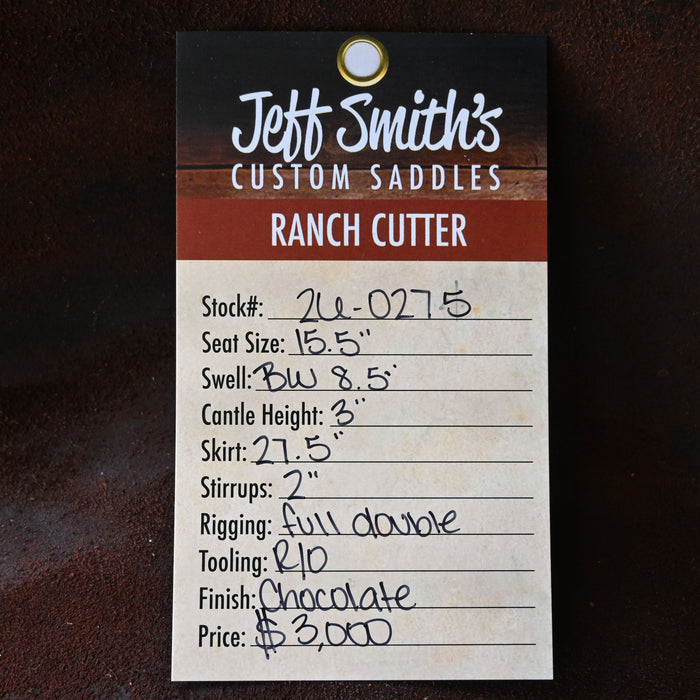 Jeff Smith's
CUSTOM SADDLES
RANCH CUTTER
Stock#: 26-0275
Seat Size: 15.5"
Swell: BW 8.5"
Cantle Height: 3"
Skirt: 27.5"
Stirrups: 2"
Rigging: full double
Tooling: R/O
Finish: Chocolate
Price: $3,000